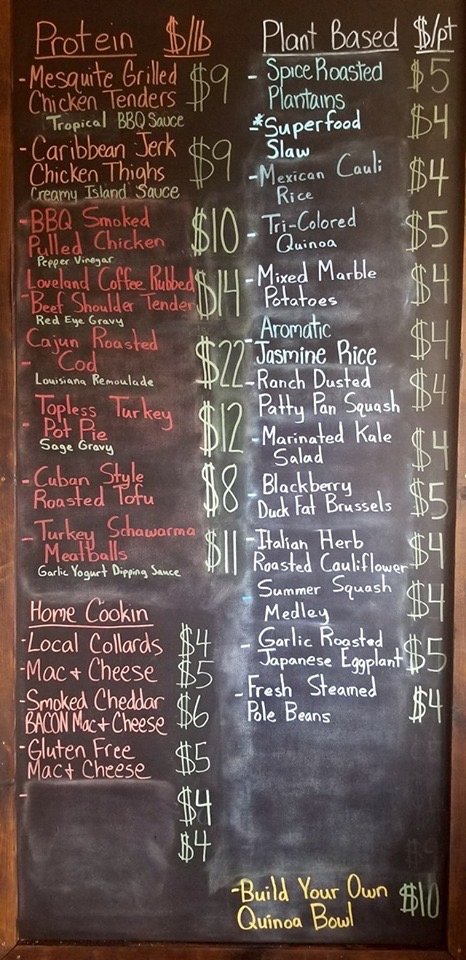 Protein $/lb
- Mesquite Grilled
Chicken Tenders $9
Tropical BBQ Sauce
- Caribbean Jerk
Chicken Thighs $9
Creamy Island Sauce
- BBQ Smoked
Pulled Chicken $10
Pepper Vinegar
Loveland Coffee Rubbed
- Beef Shoulder Tender $14
Red Eye Gravy
Cajun Roasted
- Cod $22
Louisiana Remoulade
- Topless Turkey
Pot Pie $12
Sage Gravy
- Cuban Style
Roasted Tofu $8
- Turkey Schawarma
Meatballs $11
Garlic Yogurt Dipping Sauce
Home Cookin
- Local Collards $4
- Mac + Cheese $5
- Smoked Cheddar
BACON Mac + Cheese $6
- Gluten Free
Mac + Cheese $5
-
$4
$4
Plant Based $/pt
- Spice Roasted
Plantains $5
-*Superfood
Slaw $4
- Mexican Cauli
Rice $4
- Tri-Colored
Quinoa $5
- Mixed Marble
Potatoes $4
Aromatic
- Jasmine Rice $4
- Ranch Dusted
Patty Pan Squash $4
- Marinated Kale
Salad $4
- Blackberry
Duck Fat Brussels $5
- Italian Herb
Roasted Cauliflower $4
- Summer Squash
Medley $4
- Garlic Roasted
Japanese Eggplant $5
- Fresh Steamed
Pole Beans $4
- Build Your Own
Quinoa Bowl $10